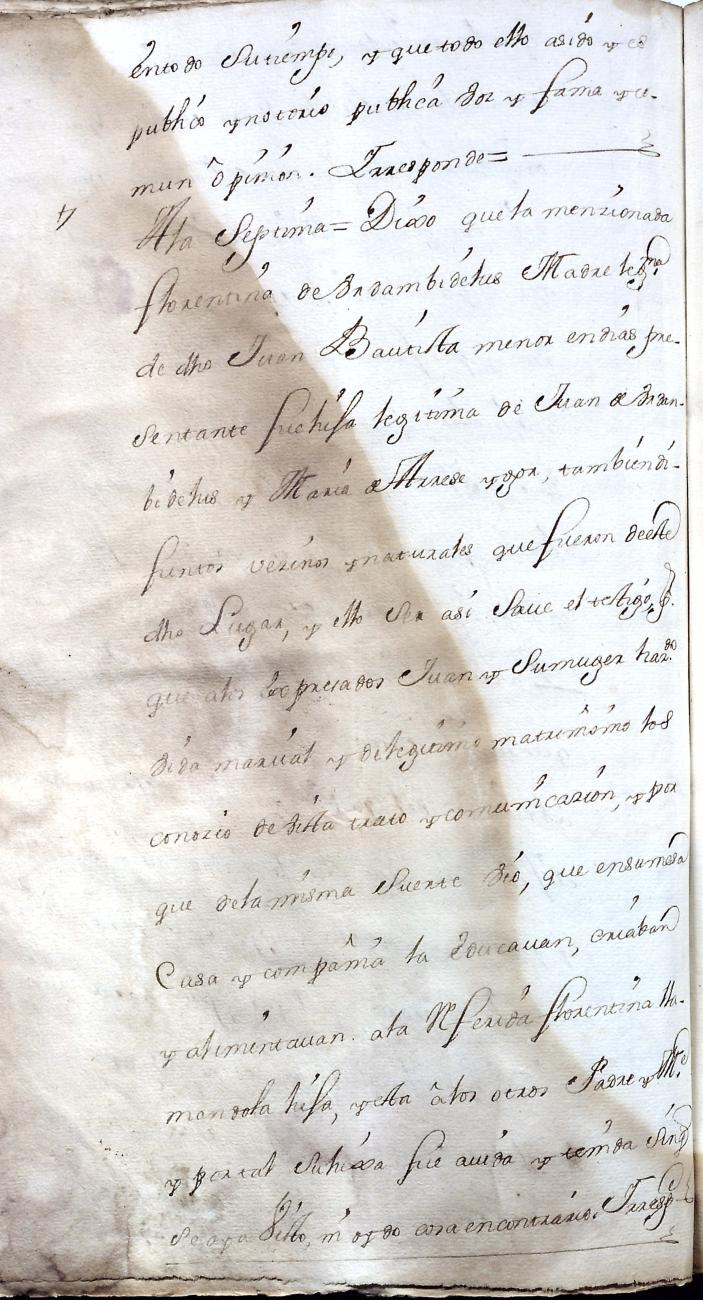 en todo su tiempo, y que todo ello asido y es
publico y notorio publica Voz y fama y co-
mun opinion. Y rresponde=
7 A la Septima= Dixo que la menzionada
florentina de Urdambidelus Madre legma
de dho Juan Bautista menor en dias pre-
sentante fue hija legitima de Juan de Urdan-
bidelus y Maria de Arrese y gor, tambien di-
funtos vezinos y naturales que fueron de este
dho Lugar, y ello ser asi save el testigo, p.
que alos expresados Juan y Su muger hazdo
Vida marital y de legitimo matrimonio los
conozio de Vista trato y comunicazion, y por
que dela misma Suerte Vio, que en su mesa
Casa y compañia la educavan, criaban
y alimentavan. ala Referida florentina lla-
mandola hija, y esta â los otros Padre y Me
y por tal su hixa fue avida y tenida sin q
se aya Visto, ni oydo cosa en contrario. Y rrespde